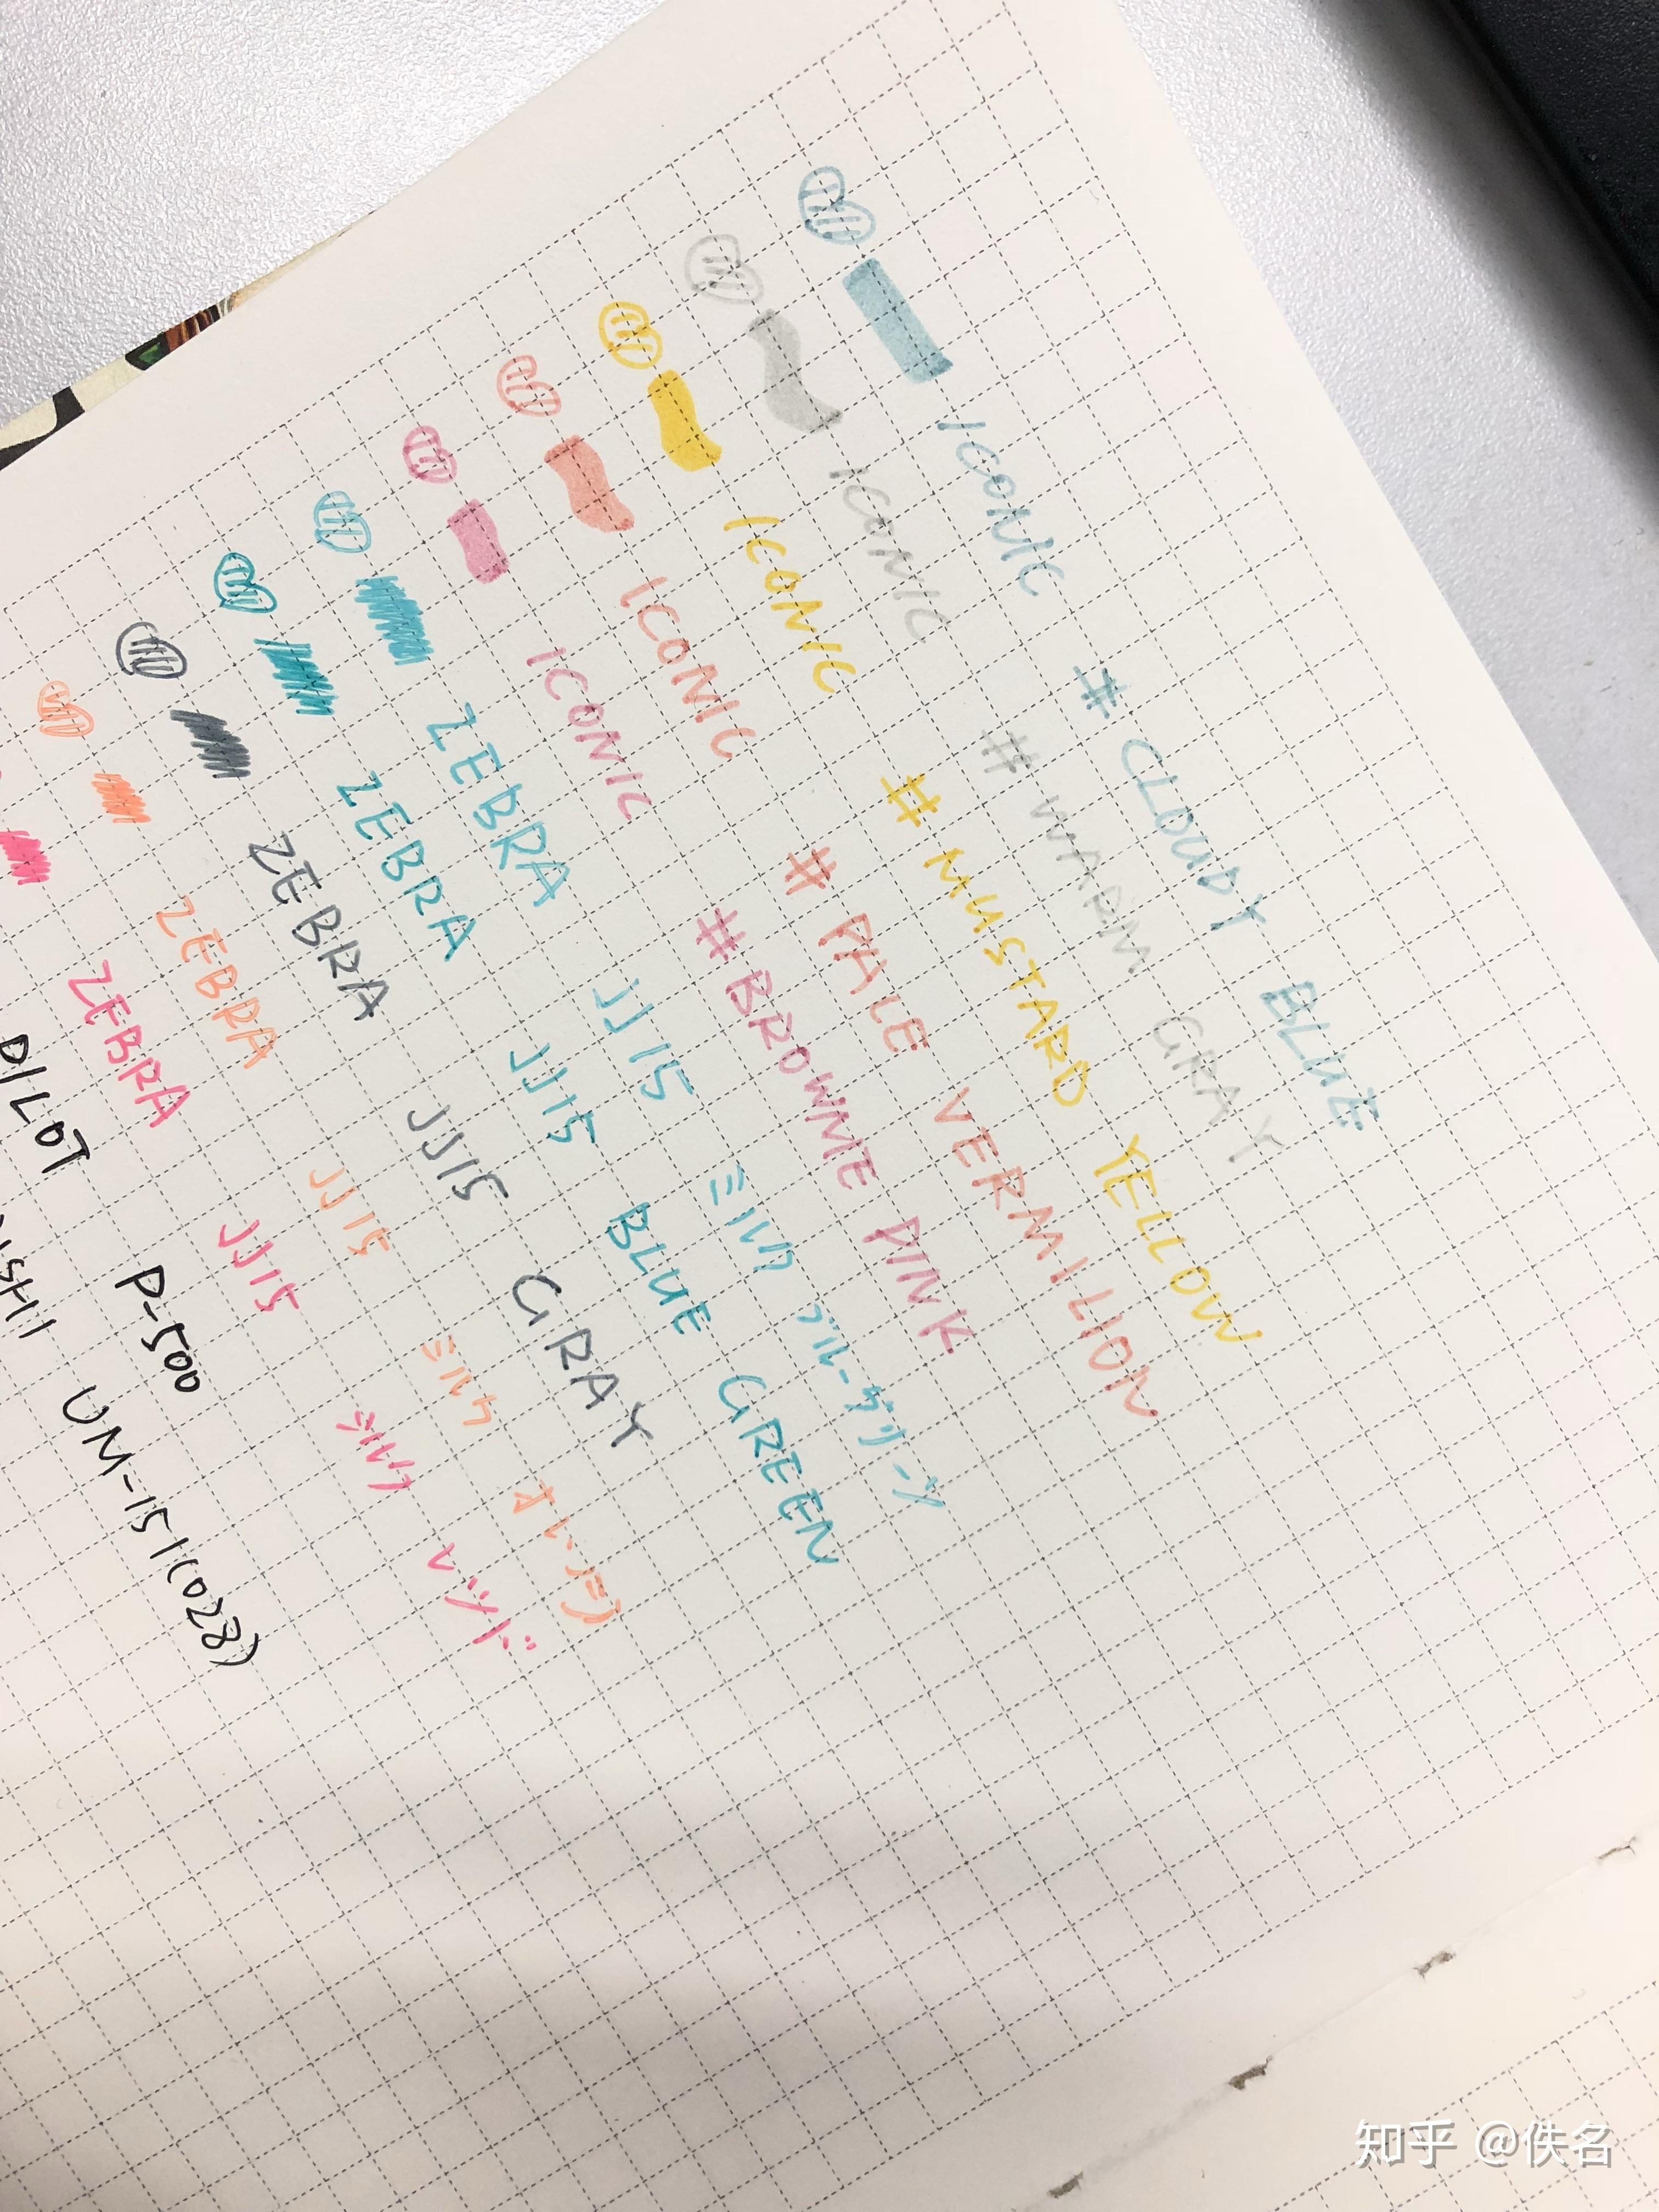 ICONIC # CLOUDY BLUE
ICONIC # WARM GRAY
ICONIC # MUSTARD YELLOW
ICONIC # PALE VERMILION
ICONIC # BROWNIE PINK
ZEBRA JJ15 ミルク ブルーグリーン
ZEBRA JJ15 BLUE GREEN
ZEBRA JJ15 GRAY
ZEBRA JJ15 ミルク オレンジ
ZEBRA JJ15 ミルク レッド
PILOT P-500
UM-151(028)
知乎 @佚名